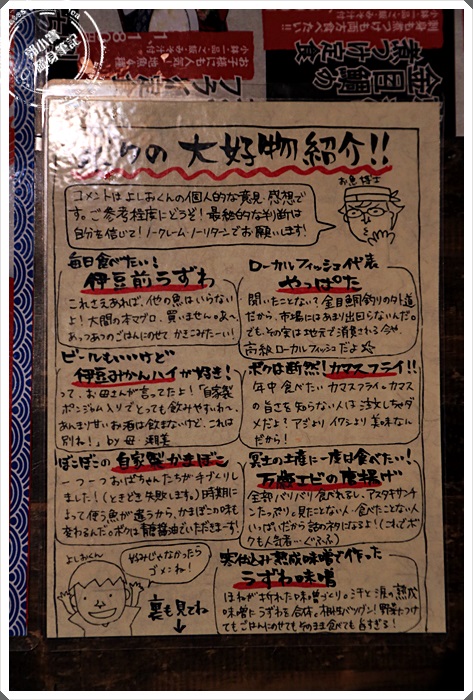 大好物紹介!!
お魚博士
コメントはよしおくんの個人的な意見・感想で
す。ご参考程度にどうぞ!最終的な判断は
自分を信じて!ノークレーム・ノーリターンでお願いします!
毎日食べたい!
伊豆前うずわ
これさえあれば、他の魚はいらない
よ!大間の本マグロ、買いません。あ〜、
あっつあつのごはんにのせて かきこみたーい!
ローカルフィッシュ代表
やっぱた
聞いたことない?金目鯛釣りの外道
だから、市場にはあまり出回らないんだ。
でも、その実は地元で消費される今や、
高級ローカルフィッシュだよ
ビールもいいけど
伊豆みかんハイが好き!
って、お母さんが言ってたよ!「自家製
ポンジャム入りでとっても飲みやすいわ〜。
あんまり甘いお酒は飲まないけど、これは
別ね!」by 母
ボクは断然!カマスフライ!!
年中食べたいカマスフライ。カマス
の旨さを知らない人は注文しちゃダ
メだよ?アジよりイワシより美味なん
だから!
ぼこぼこの自家製かまぼこ
一つ一つおばちゃんたちが手づくりし
ました!(ときどき失敗します。)時期によ
って使う魚が違うから、かまぼこの味も
変わるんだ。ボクは醤油でいただきまーす!
冥土の土産に一度は食べたい!
エビの唐揚げ
全部バリバリ食べれるし、アスタキサンチ
ンたっぷり。見たことない人・食べたことない人
いっぱいだから話のネタになるよ!(これでボク
も人気者…ぐふふ)
よしおくん
好みじゃなかったら
ゴメンね!
裏も見てね
↓
寒仕込み熟成味噌で作った
うずわ味噌
ほねが折れた味噌づくり。汗と涙の熟成
味噌にうずわを合体。相性バツグン!野菜につけ
てもごはんにのせてもそのまま食べても旨すぎる!